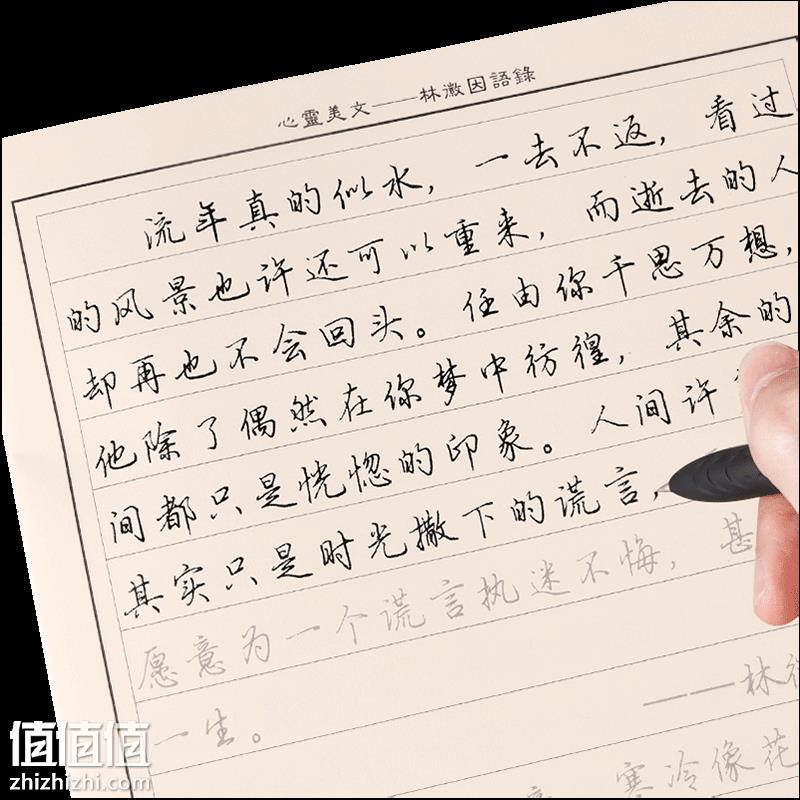 心靈美文——林徽因語錄
流年真的似水，一去不返，看过
的风景也许还可以重来，而逝去的人
却再也不会回头。任由你千思万想，
他除了偶然在你梦中彷徨，其余的
间都只是恍惚的印象。人间许
其实只是时光撒下的谎言，
愿意为一个谎言执迷不悔，甚
——林
一生。
寒冷像花
值值值
zhizhizhi.com